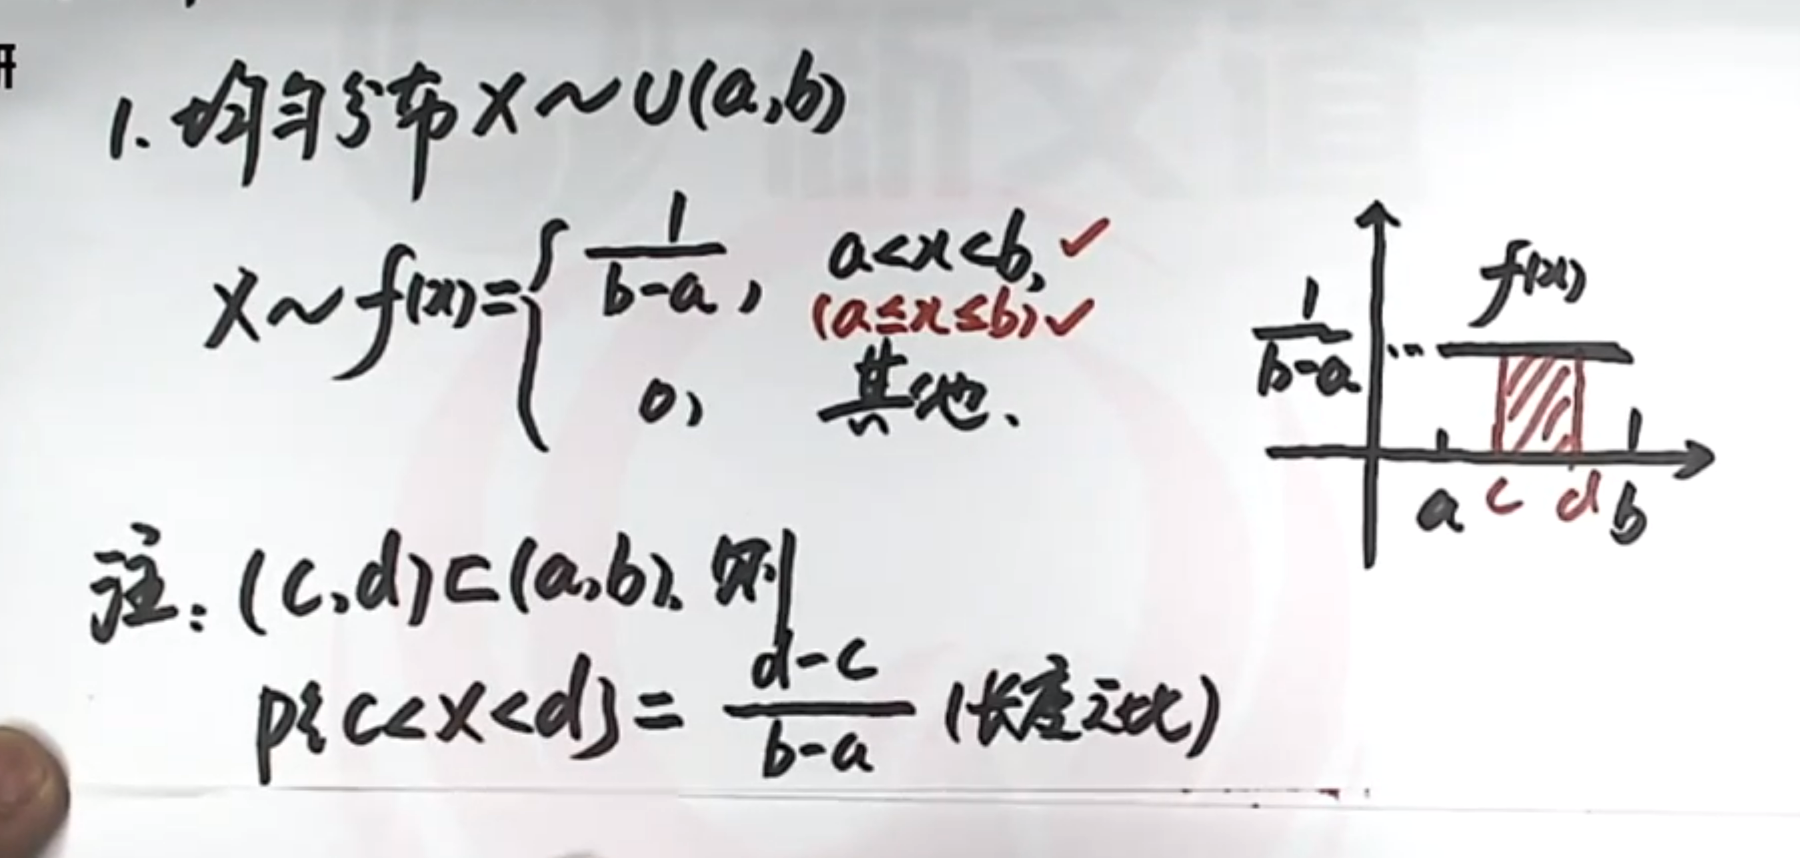 1. 均匀分布 X~U(a,b)
X~f(x)={ 1/(b-a), a<x<b, ✓
(a≤x≤b) ✓
0, 其他.
f(x)
1/(b-a) ...
a c d b
注: (c,d)⊂(a,b), 则
P{c<X<d}= (d-c)/(b-a) (长度之比)